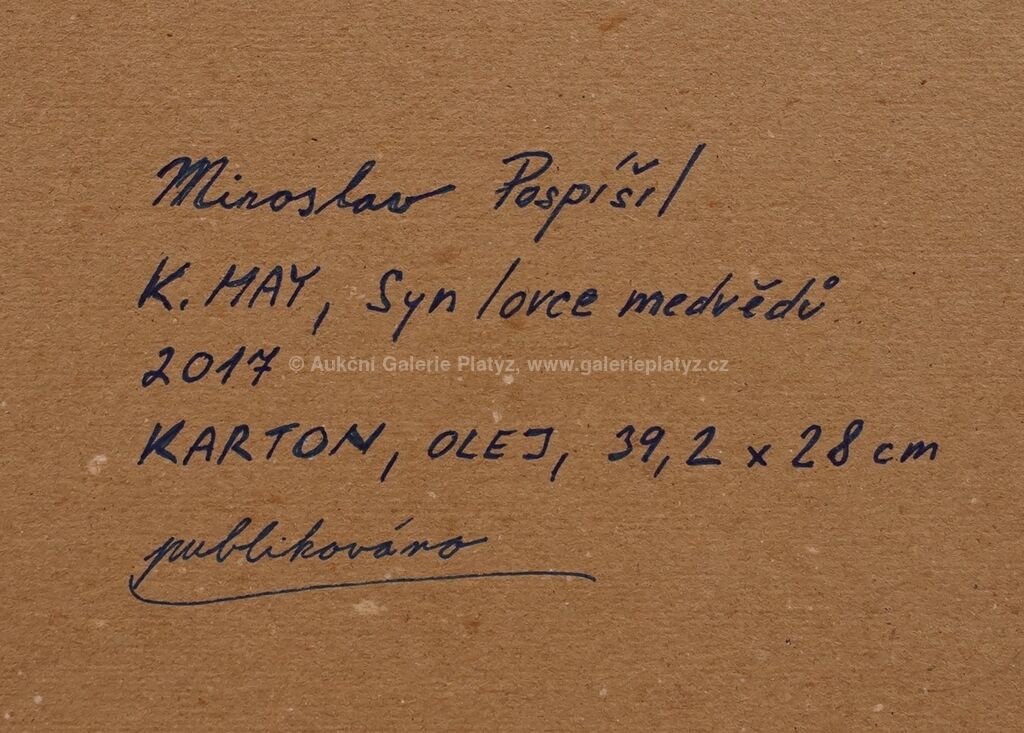 Miroslav Pospíšil
K. MAY, Syn lovce medvědů
2017
© Aukční Galerie Platýz, www.galerieplatyz.cz
KARTON, OLEJ, 39,2 x 28 cm
publikováno